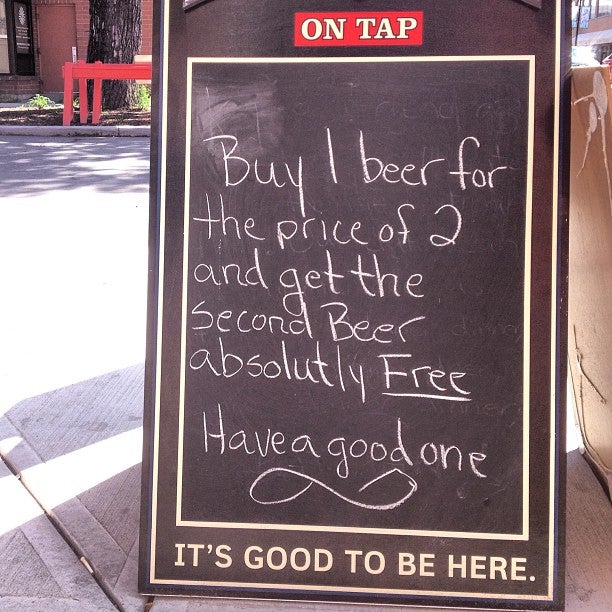 ON TAP
Buy 1 beer for
the price of 2
and get the
second Beer
absolutly Free
Have a good one
IT'S GOOD TO BE HERE.